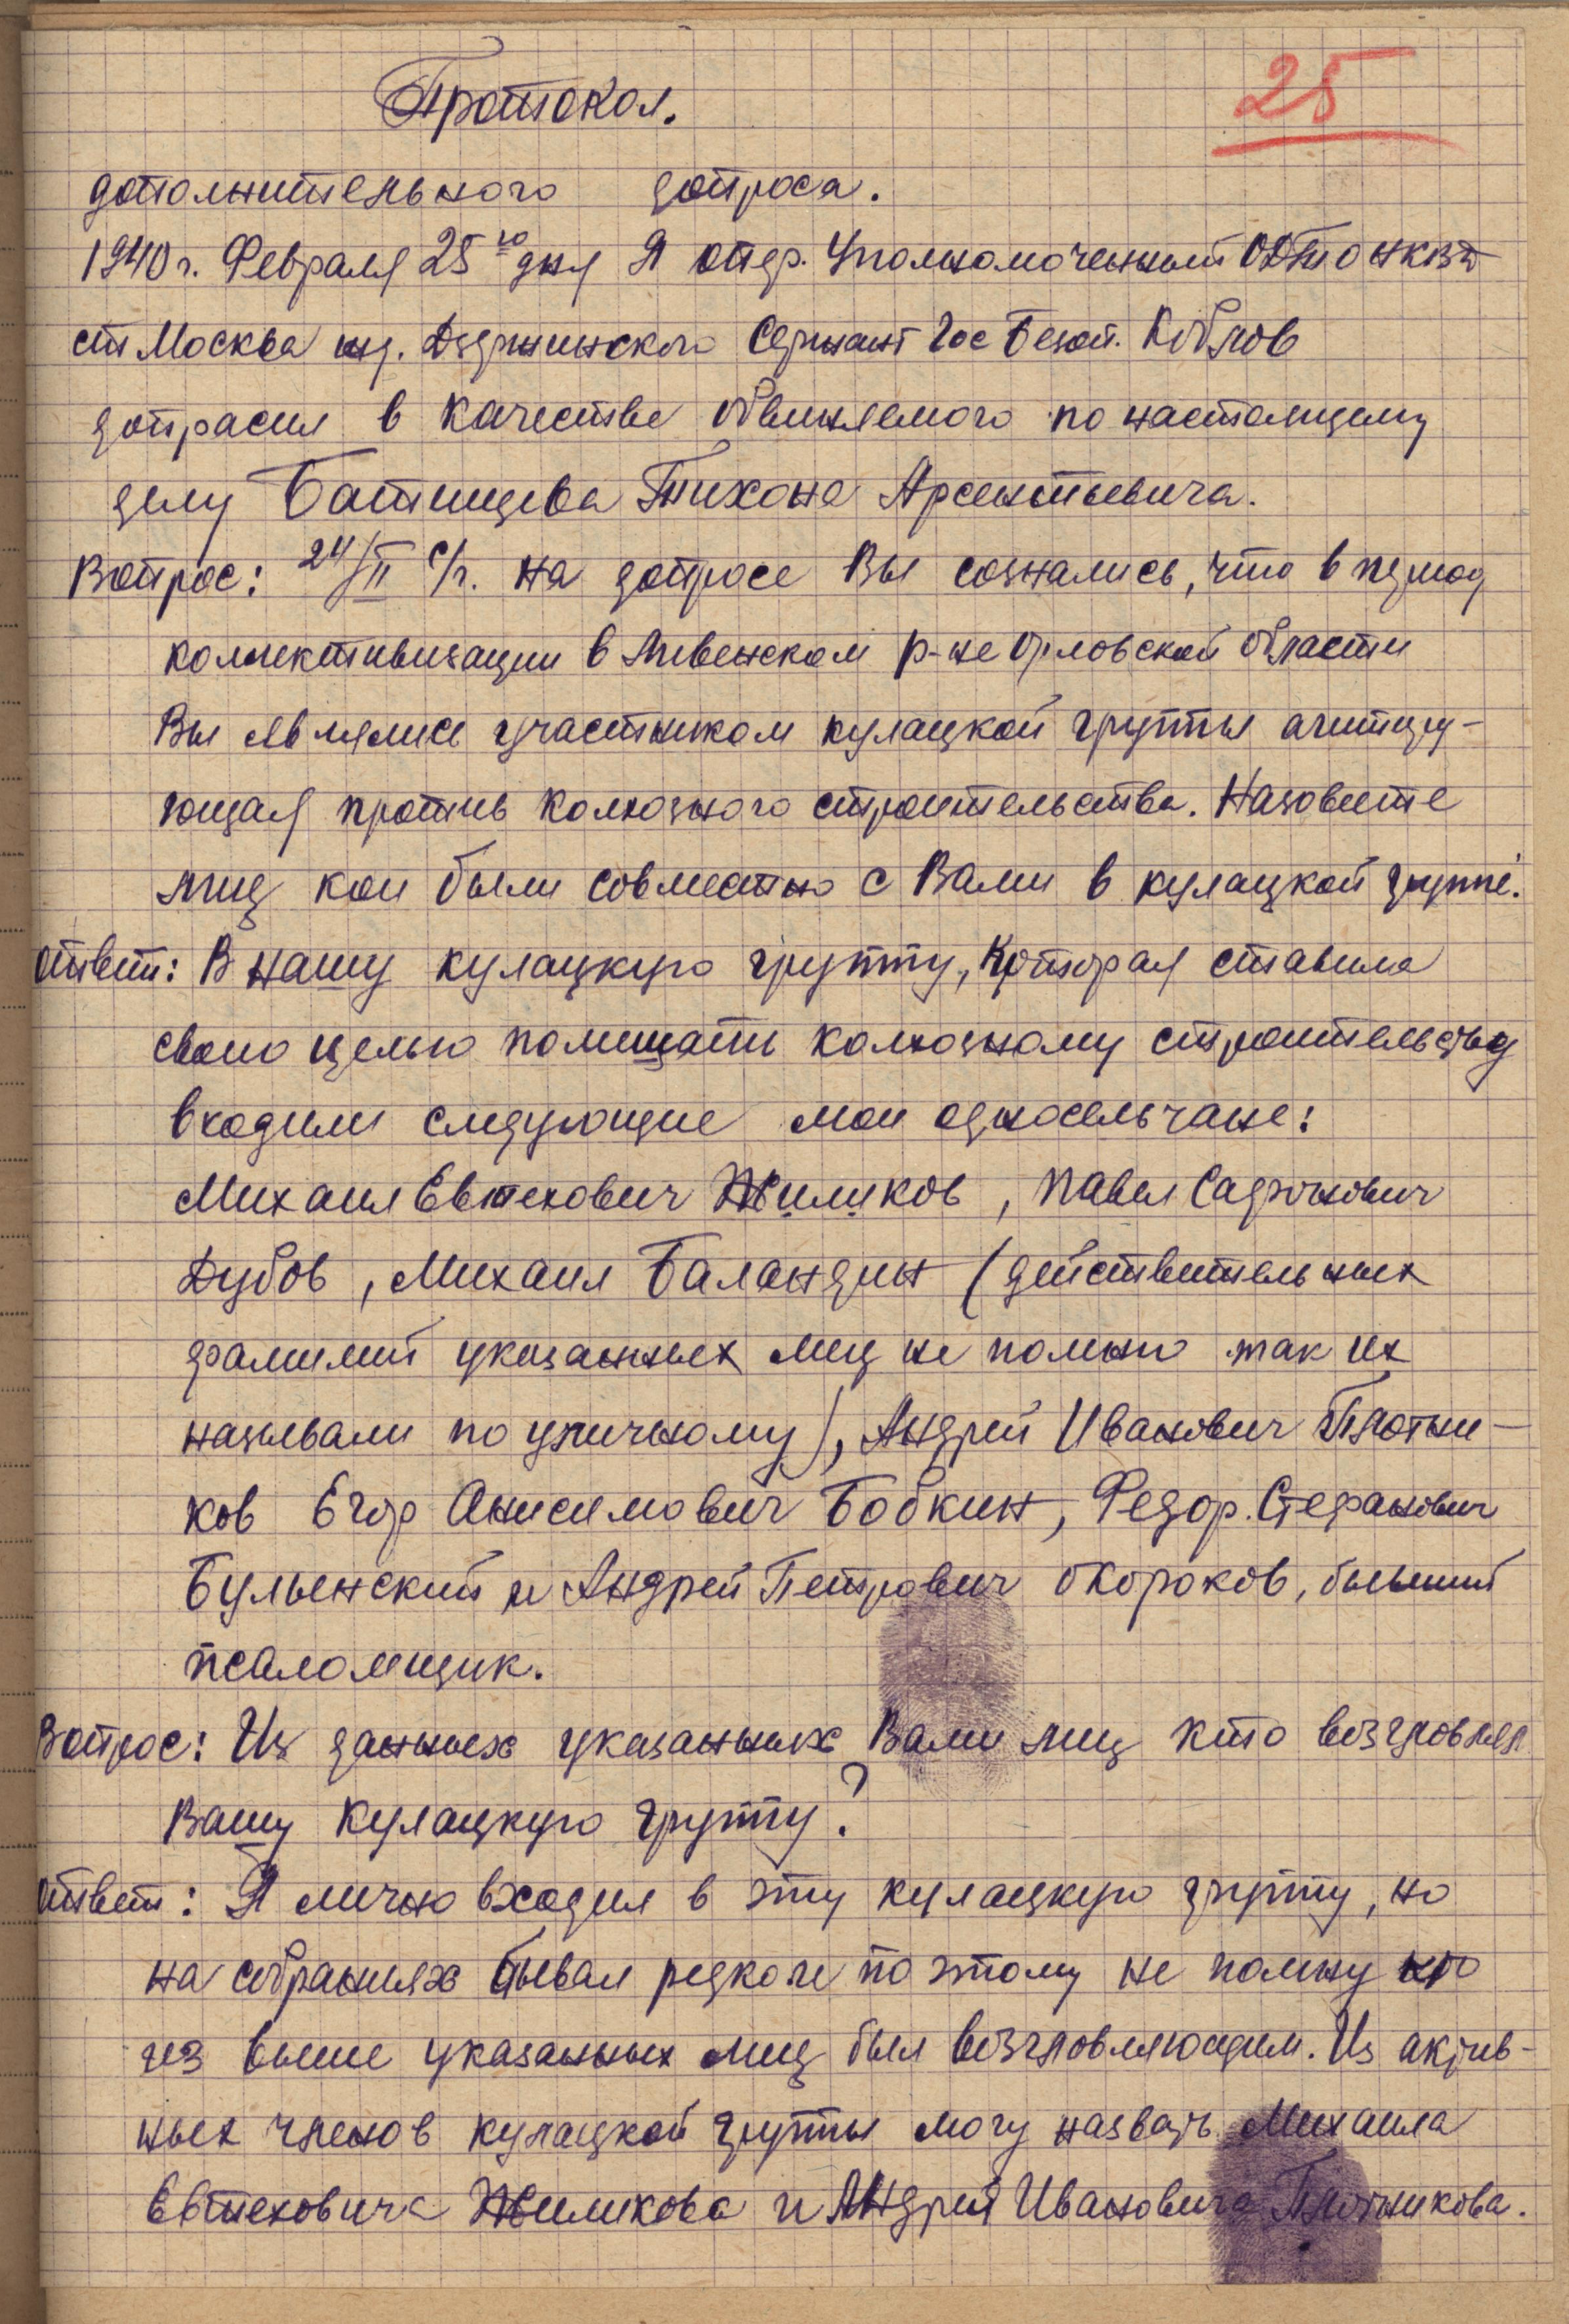 Протокол.
25
дополнительного допроса.
1940 г. Февраля 25го дня Я опер. Уполномоченный ОДТО НКВД
ст Москва им. Дзержинского Сержант Гос Безоп. Кобяков
допрасил в качестве обвиняемого по настоящему
делу Батищева Тихона Арсентьевича.
Вопрос: 24/II с/г. на допросе Вы сознались, что в период
коллективизации в Ливенском р-не Орловской области
Вы являлись участником кулацкой группы агитиру-
ющая против колхозного строительства. Назовите
лиц кои были совместно с Вами в кулацкой группе.
Ответ: В нашу кулацкую группу, которая ставила
свою целью помешать колхозному строительству
входили следующие мои односельчане:
Михаил Евтехович Жиликов, Павел
Дубов, Михаил Баландин (действительных
фамилий указанных лиц не помню так их
называли по уличному), Андрей Иванович Плотни-
ков Егор Анисимович Бобкин, Федор. Стефанович
Булыенский и Андрей Петрович Окороков, бывший
псаломщик.
Вопрос: Из данных указанных Вами лиц кто возгловлял
Вашу кулацкую группу?
Ответ: Я лично входил в эту кулацкую группу, но
на собраниях бывал редко и поэтому не помну кто
из выше указанных лиц был возгловляющим. Из актив-
ных членов кулацкой группы могу назвать Михаила
Евтеховича Жиликова и Андрей Ивановича Плотникова.